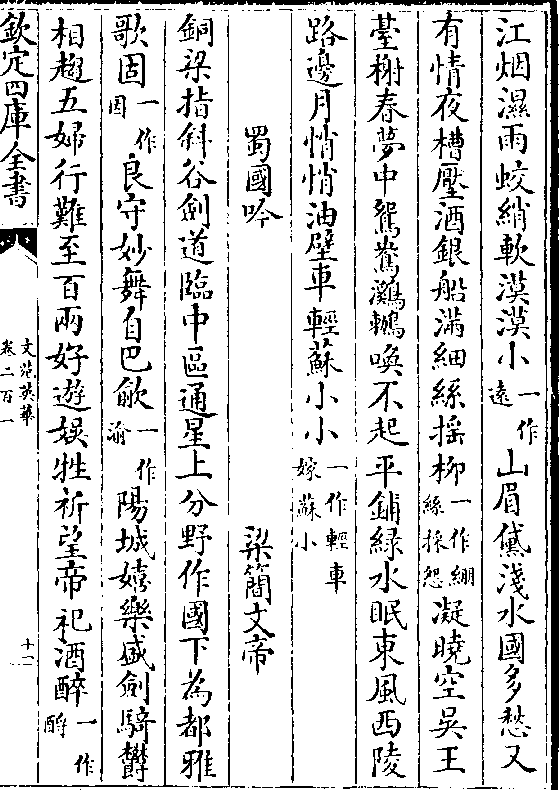 江烟濕雨蛟綃軟漠漠小一作遠山眉黛淺水國多愁又
有情夜槽壓酒銀船滿細絲揺柳一作綳絲採怨凝曉空吳王
臺榭春夢中鴛鴦鸂鶒喚不起平鋪緑水眠東風西陵
路邊月悄悄油壁車輕蘇小小一作輕車嫁蘇小
蜀國吟
梁簡文帝
銅梁指斜谷劍道臨中區通星上分野作國下為都雅
歌固一作因良守妙舞自巴歈一作渝陽城嬉樂盛劍騎欝
相趨五婦行難至百兩好遊娱牲祈望帝祀酒醉一作酹
欽定四庫全書
文苑英華
卷二百一
十一